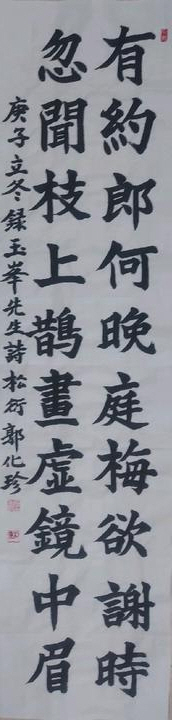 有約郎何晚庭梅欲謝時
忽聞枝上鵲畫虛鏡中眉
庚子立冬錄玉峯先生詩松衍郭化珍